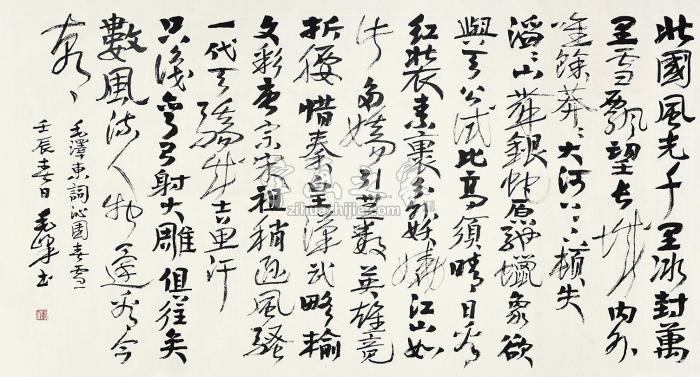 北國風光千里冰封萬
里雪飄望長城內外
唯餘莽〻大河上下頓失
滔〻山舞銀蛇原馳蠟象欲
與天公試比高須晴日看
紅裝素裹分外妖嬈江山如
此多嬌引無數英雄競
折腰惜秦皇漢武略輸
文彩唐宗宋祖稍遜風騷
一代天驕成吉思汗
只識彎弓射大雕俱往矣
數風流人物還看今
朝
毛澤東詞沁園春雪
壬辰春日毛峰書